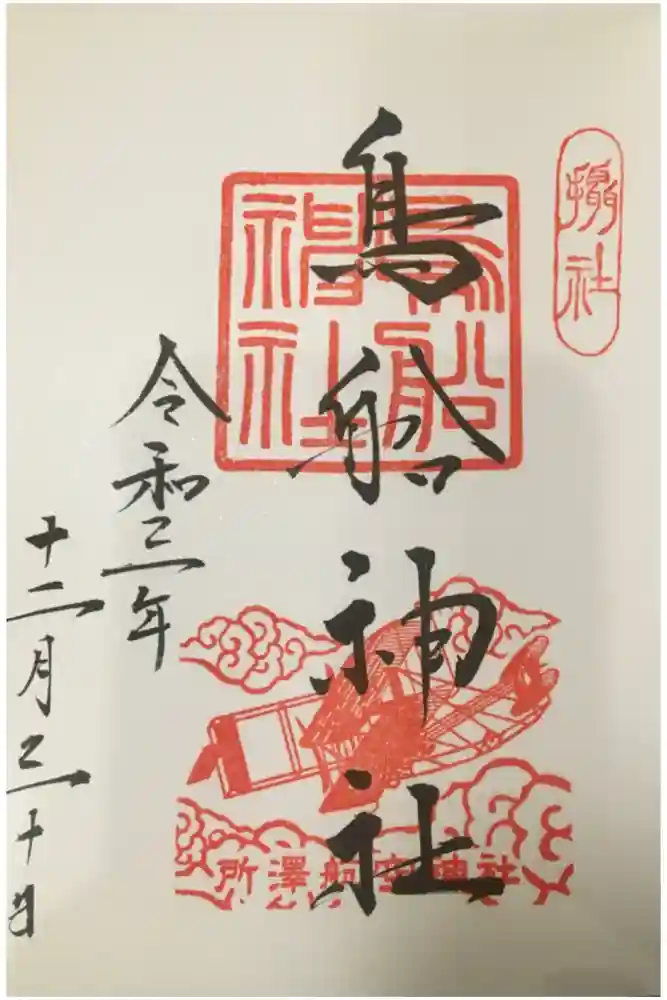 摂社
鳥船神社
鳥船
神社
令和三年
十二月三十日
所澤航空神社